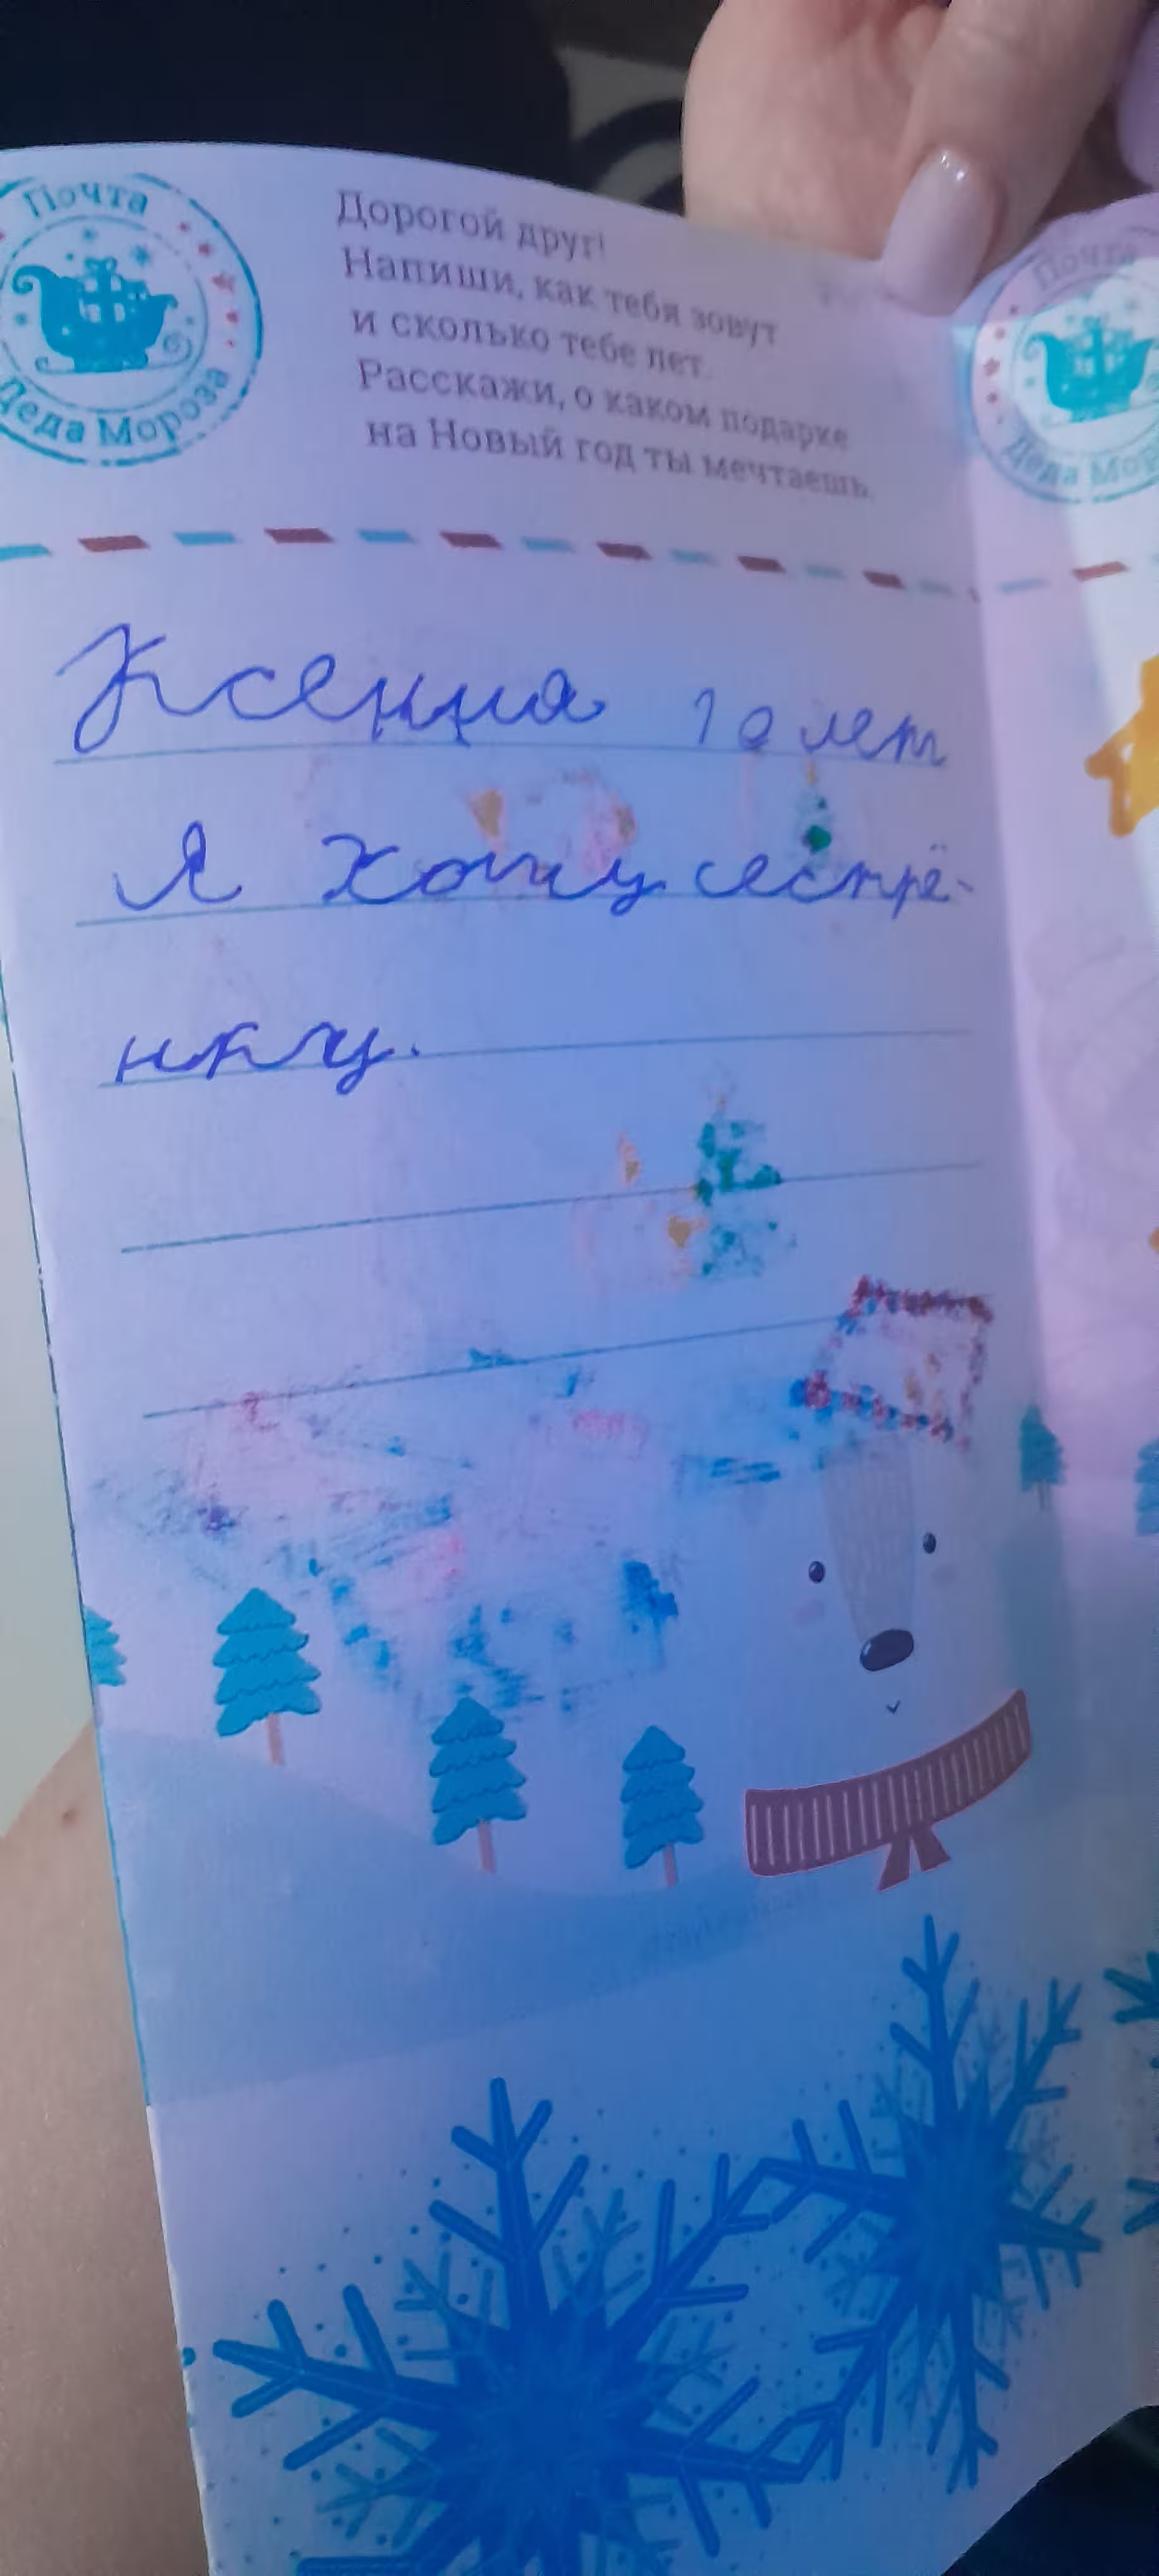 Почта
Деда Мороза
Дорогой друг!
Напиши, как тебя зовут
и сколько тебе лет.
Расскажи, о каком подарке
на Новый год ты мечтаешь.
Ксения 10 лет
Я хочу сестрё-
нку.
Почта
Деда Мор